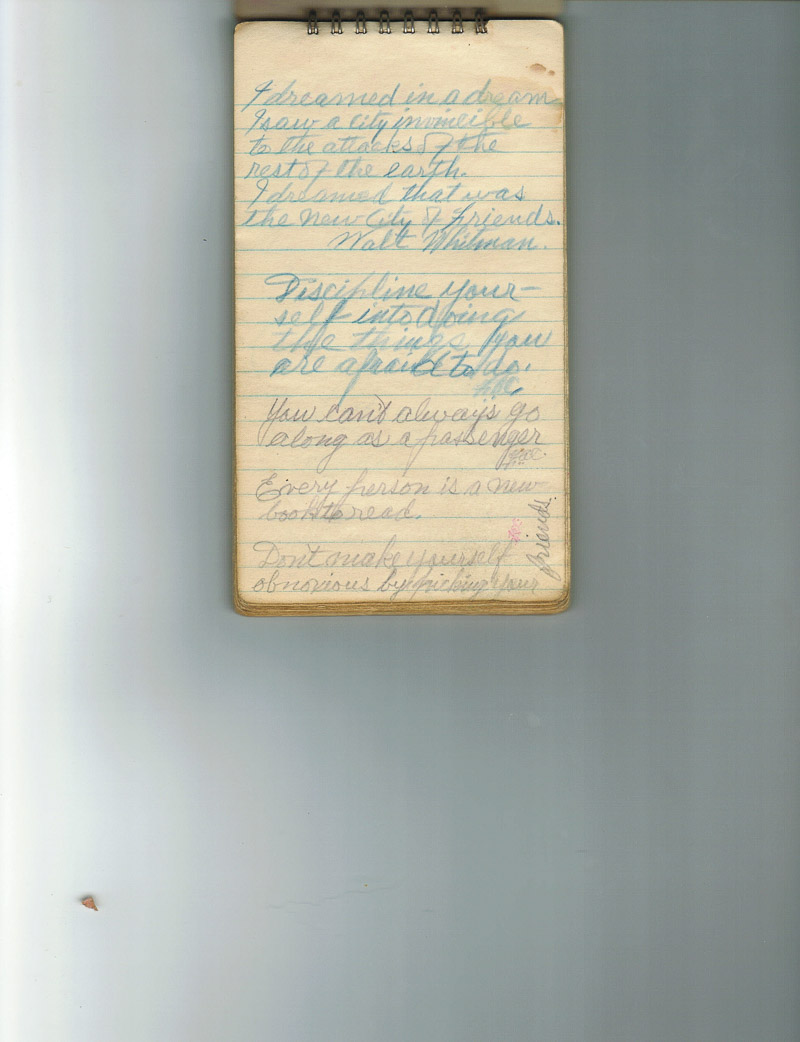 I dreamed in a dream
I saw a city invincible
to the attacks of the
rest of the earth.
I dreamed that was
the New City of Friends.
Walt Whitman.
Discipline your-
self into doing
the things you
are afraid to do.
You can't always go
along as a passenger
Every person is a new
book to read.
Don't make yourself
obnoxious by picking your
friends.